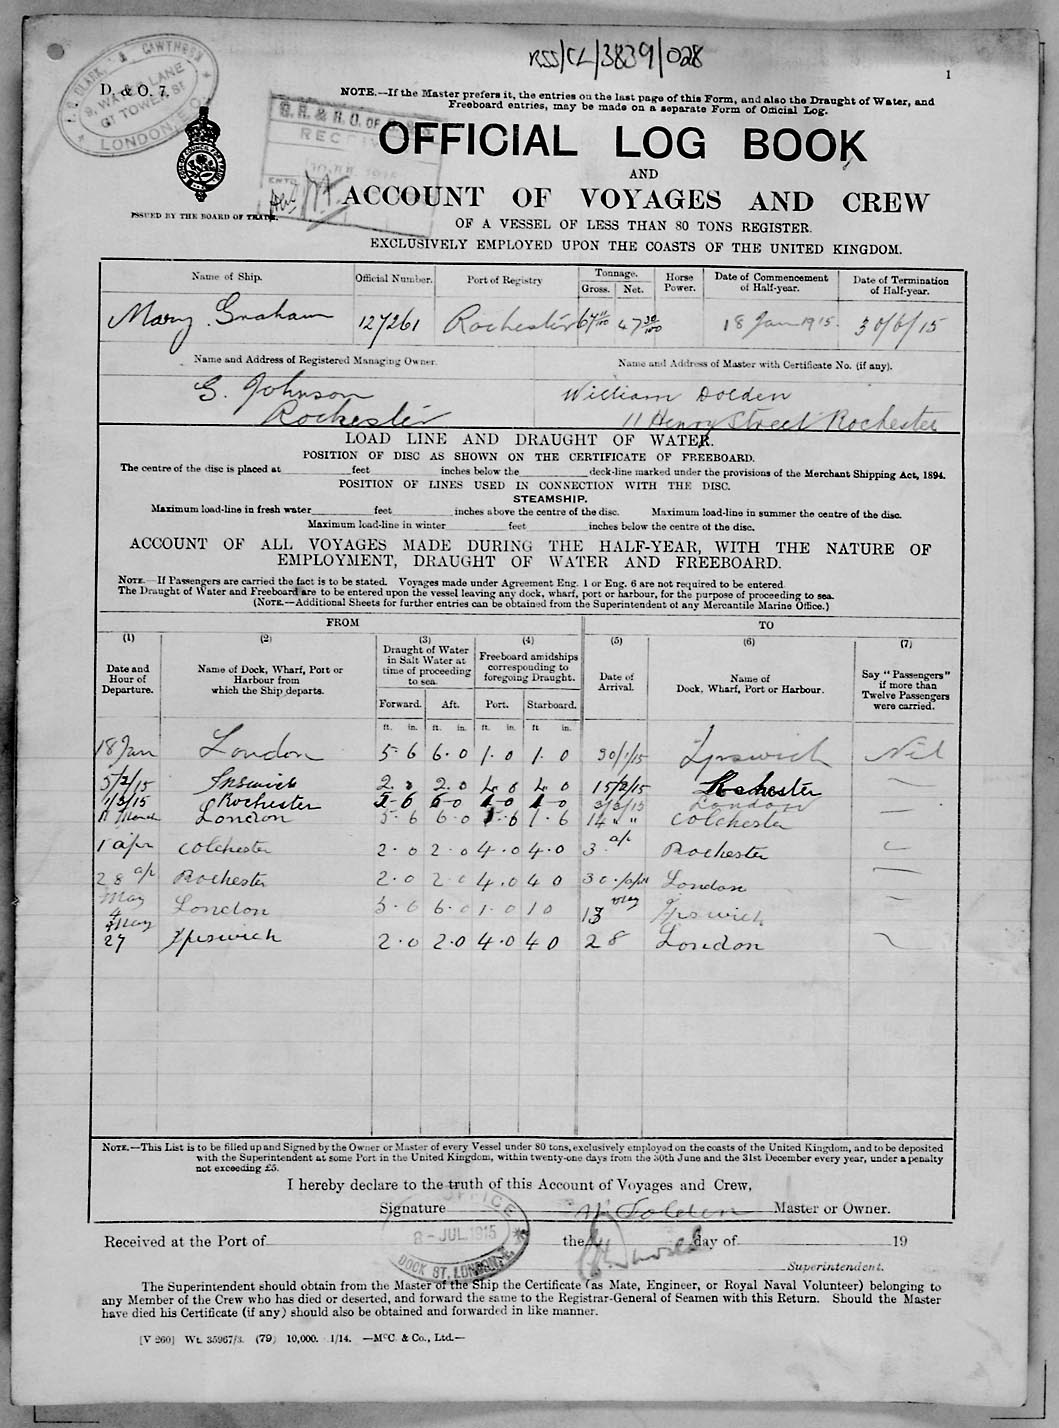 RSS/CL/3839/028
1
D. & O. 7.
9, WATER LANE
GT TOWER ST
LONDON, E.C.
NOTE.—If the Master prefers it, the entries on the last page of this Form, and also the Draught of Water, and
Freeboard entries, may be made on a separate Form of Official Log.
OFFICIAL LOG BOOK
AND
ACCOUNT OF VOYAGES AND CREW
ISSUED BY THE BOARD OF TRADE.
OF A VESSEL OF LESS THAN 80 TONS REGISTER.
EXCLUSIVELY EMPLOYED UPON THE COASTS OF THE UNITED KINGDOM.
Name of Ship. Official Number. Port of Registry Tonnage. Gross. Net. Horse Power. Date of Commencement of Half-year. Date of Termination of Half-year.
Mary Graham 127261 Rochester 47 30/100 18 Jan 1915 30/6/15
Name and Address of Registered Managing Owner. Name and Address of Master with Certificate No. (if any).
G. Johnson William Dolden
Rochester 11 Henry Street Rochester
LOAD LINE AND DRAUGHT OF WATER.
POSITION OF DISC AS SHOWN ON THE CERTIFICATE OF FREEBOARD.
The centre of the disc is placed at feet inches below the deck-line marked under the provisions of the Merchant Shipping Act, 1894.
POSITION OF LINES USED IN CONNECTION WITH THE DISC.
STEAMSHIP.
Maximum load-line in fresh water feet inches above the centre of the disc. Maximum load-line in summer the centre of the disc.
Maximum load-line in winter feet inches below the centre of the disc.
ACCOUNT OF ALL VOYAGES MADE DURING THE HALF-YEAR, WITH THE NATURE OF
EMPLOYMENT, DRAUGHT OF WATER AND FREEBOARD.
NOTE.—If Passengers are carried the fact is to be stated. Voyages made under Agreement Eng. 1 or Eng. 6 are not required to be entered
The Draught of Water and Freeboard are to be entered upon the vessel leaving any dock, wharf, port or harbour, for the purpose of proceeding to sea.
(NOTE.—Additional Sheets for further entries can be obtained from the Superintendent of any Mercantile Marine Office.)
FROM TO
(1) (2) (3) (4) (5) (6) (7)
Date and Hour of Departure. Name of Dock, Wharf, Port or Harbour from which the Ship departs. Draught of Water in Salt Water at time of proceeding to sea. Freeboard amidships corresponding to foregoing Draught. Date of Arrival. Name of Dock, Wharf, Port or Harbour. Say "Passengers" if more than Twelve Passengers were carried.
Forward. Aft. Port. Starboard.
ft. in. ft. in. ft. in. ft in.
18 Jan London 5 6 6 0 1 0 1 0 30/1/15 Ipswich Nil
5/2/15 Ipswich 2 0 2 0 4 0 4 0 15/2/15 Rochester —
1/3/15 Rochester 5 6 6 0 1 0 1 0 3/3/15 London —
11 March London 5 6 6 0 1 6 1 6 14 " " Colchester —
1 apr Colchester 2 0 2 0 4 0 4 0 3 ap Rochester
28 ap Rochester 2 0 2 0 4 0 4 0 30 apr London —
May 4 London 5 6 6 0 1 0 1 0 13 May Ipswich —
May 27 Ipswich 2 0 2 0 4 0 4 0 28 London
NOTE.—This List is to be filled up and Signed by the Owner or Master of every Vessel under 80 tons, exclusively employed on the coasts of the United Kingdom, and to be deposited
with the Superintendent at some Port in the United Kingdom, within twenty-one days from the 30th June and the 31st December every year, under a penalty
not exceeding £5.
I hereby declare to the truth of this Account of Voyages and Crew,
Signature W Dolden Master or Owner.
8-JUL.1915
DOCK ST, LONDON
Received at the Port of the day of 19
Superintendent.
The Superintendent should obtain from the Master of the Ship the Certificate (as Mate, Engineer, or Royal Naval Volunteer) belonging to
any Member of the Crew who has died or deserted, and forward the same to the Registrar-General of Seamen with this Return. Should the Master
have died his Certificate (if any) should also be obtained and forwarded in like manner.
[V 260] Wt. 35967/3. (79) 10,000. 1/14. —McC & Co., Ltd.—